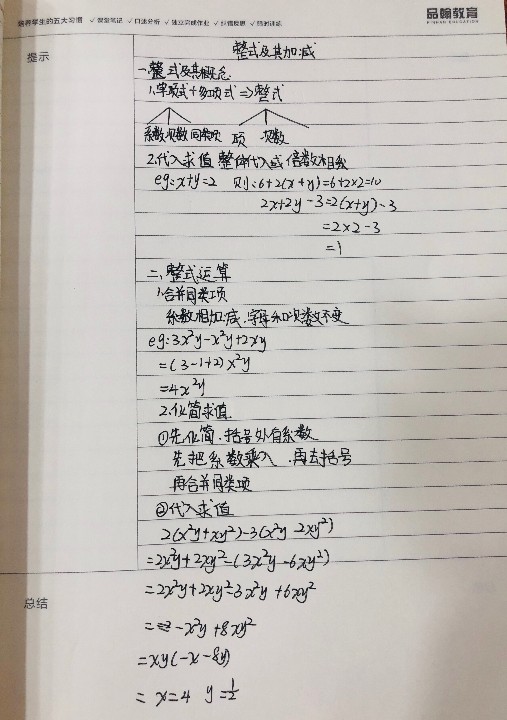 培养学生的五大习惯 ✓课堂笔记 ✓口述分析 ✓独立完成作业 ✓纠错反思 ✓限时训练
品翰教育
PINHAN EDUCATION
提示
整式及其加减
一、整式及其概念
1.单项式+多项式⇒整式
系数 次数 同类项 项 次数
2.代入求值 整体代入或倍数相乘
eg:x+y=2 则:6+2(x+y)=6+2×2=10
2x+2y-3=2(x+y)-3
=2×2-3
=1
二、整式运算
1.合并同类项
系数相加减,字母和次数不变
eg:3x²y-x²y+2xy
=(3-1+2)x²y
=4x²y
2.化简求值
①先化简.括号外有系数
先把系数乘入.再去括号
再合并同类项
②代入求值
2(x²y+xy²)-3(x²y-2xy²)
=2x²y+2xy²-(3x²y-6xy²)
=2x²y+2xy²-3x²y+6xy²
总结
=-x²y+8xy²
=xy(-x-8y)
= x=4 y=1/2